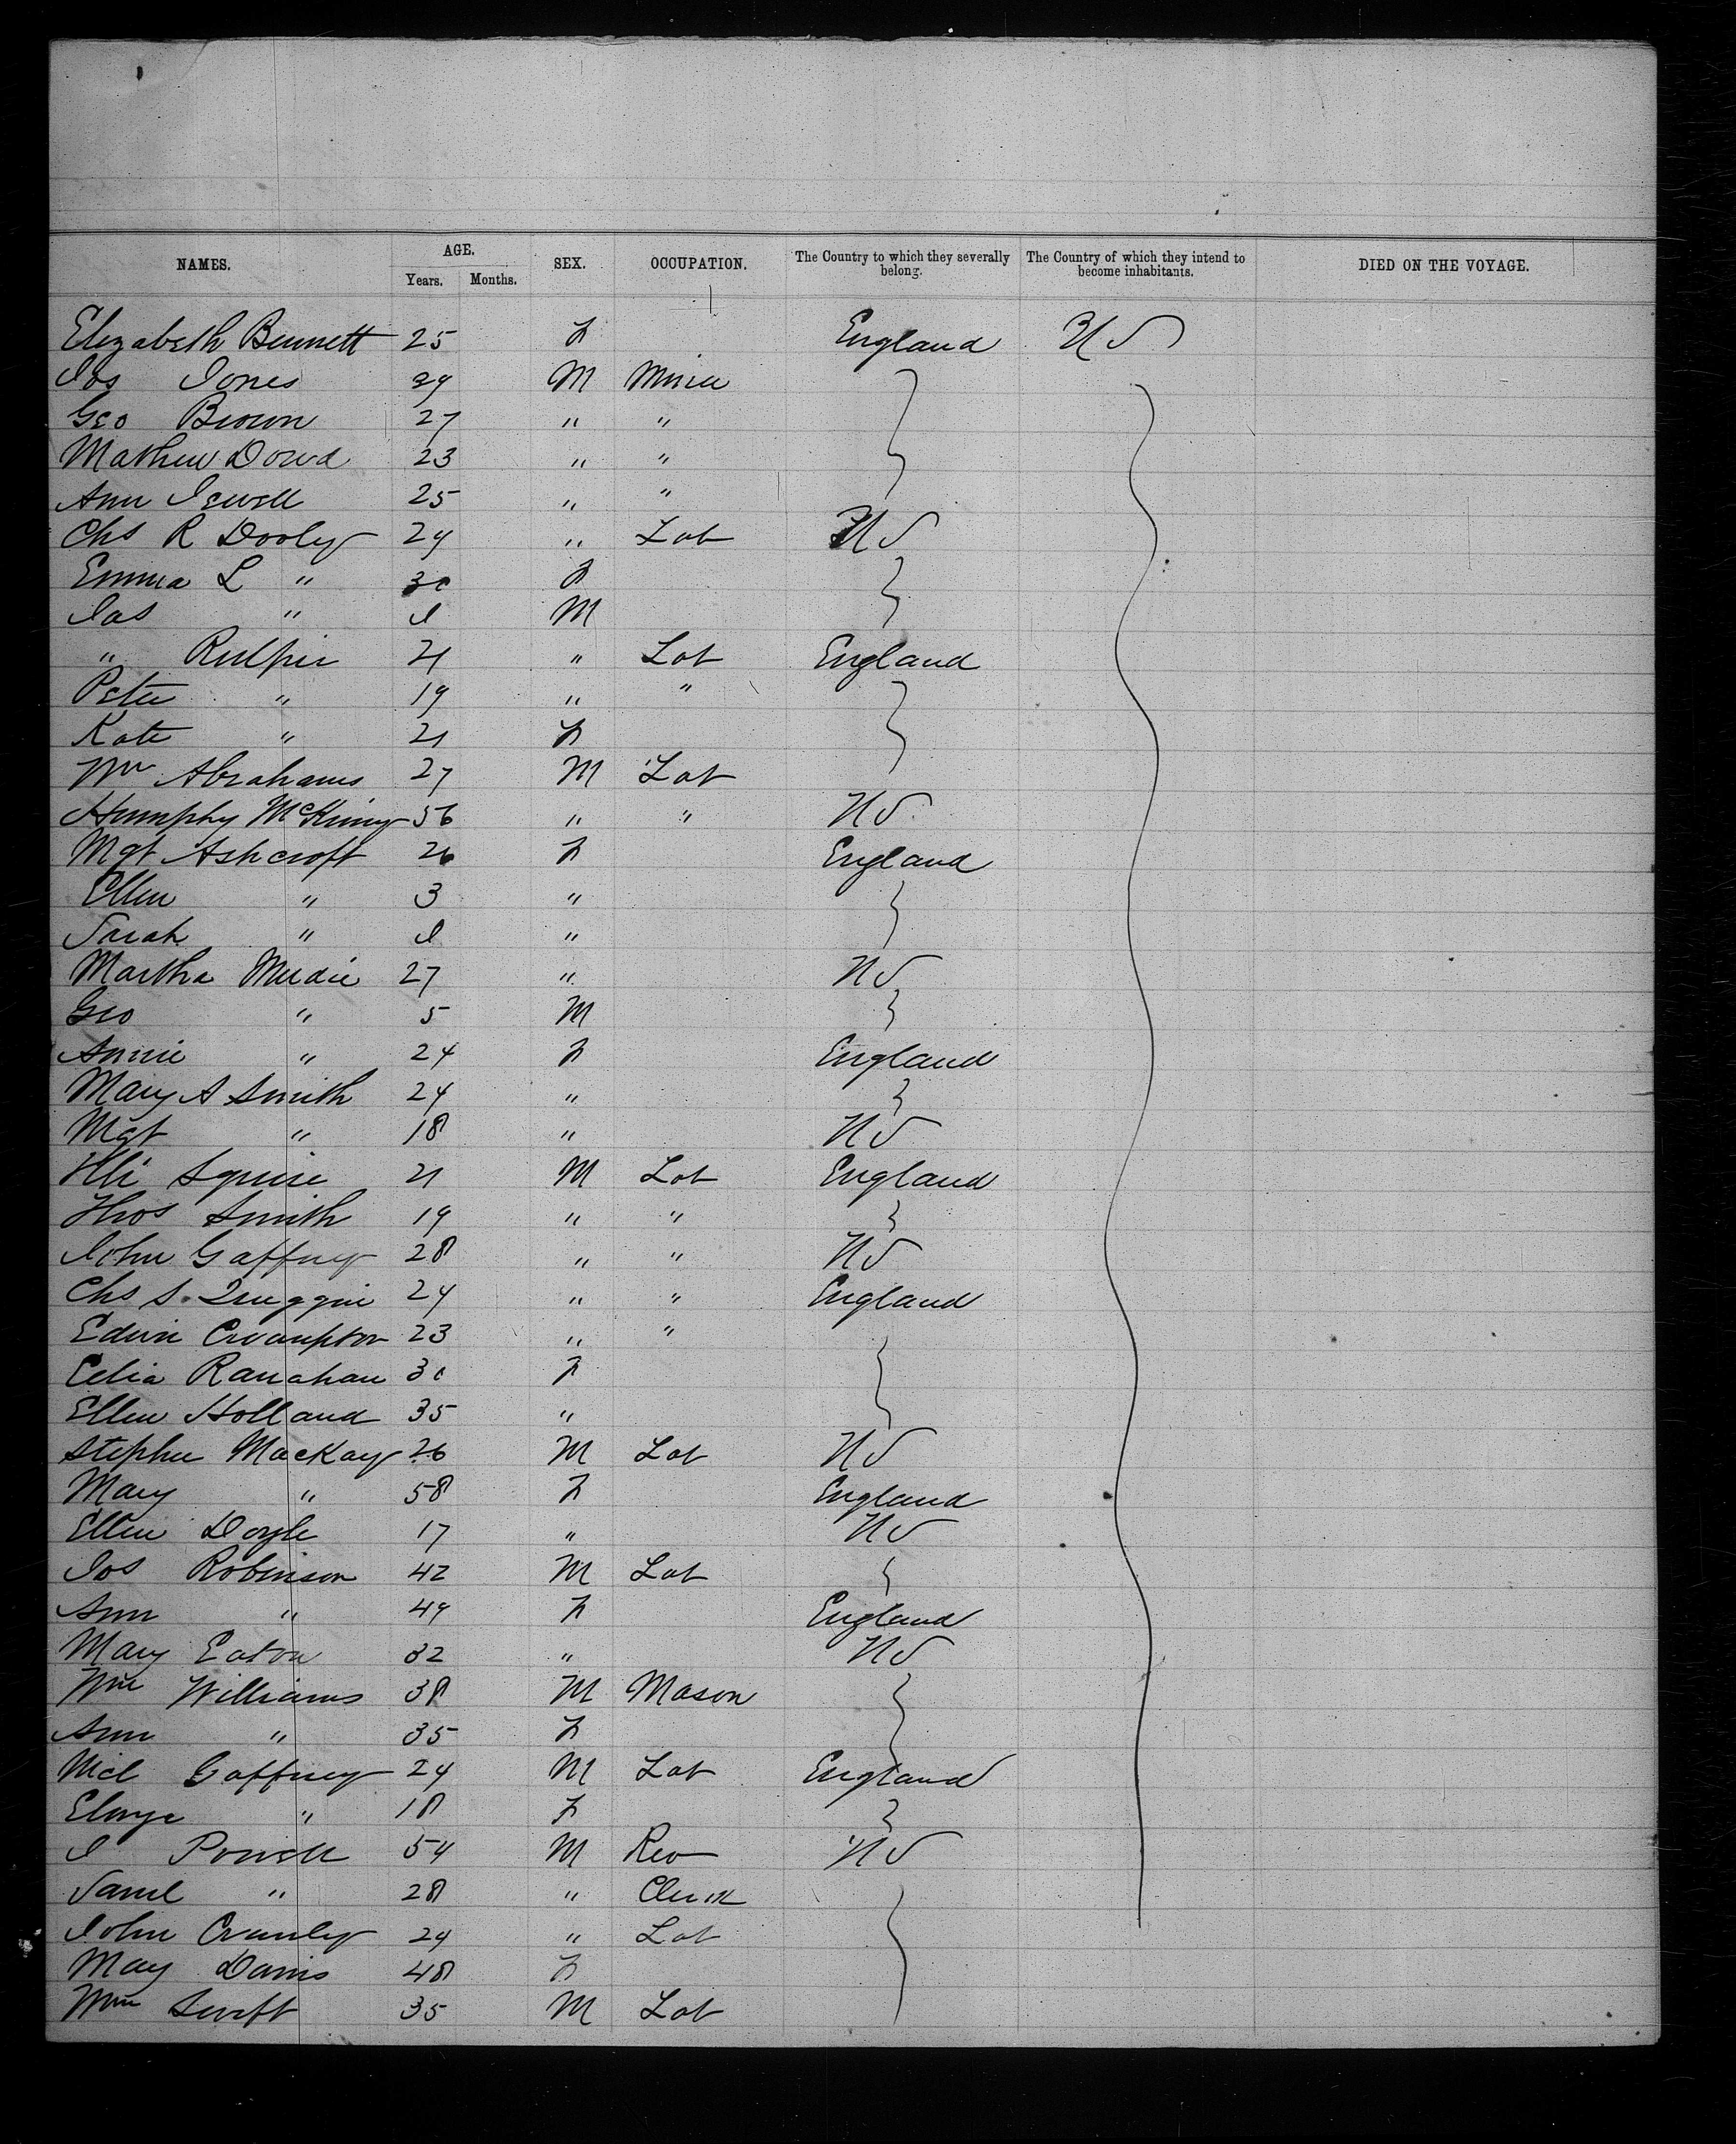 NAMES. AGE. Years. Months. SEX. OCCUPATION. The Country to which they severally belong. The Country of which they intend to become inhabitants. DIED ON THE VOYAGE.
Elizabeth Bennett 25 F England US
Jas Jones 29 M Miner
Geo Brown 27 " "
Mathew Dowd 23 " "
Ann Jewell 25 " "
Chs R Dooley 24 " Lab US
Emma L " 30 F
Jas " 1 M
" 21 " Lab England
Peter " 19 " "
Kate " 21 F
Wm Abrahams 27 M Lab
Humphy McKinny 56 " " US
Mgt Ashcroft 26 F England
Ellen " 3 "
Sarah " 1 "
Martha 27 " US
Geo " 5 M
Annie " 24 F England
Mary A Smith 24 "
Mgt " 18 " US
Squire 21 M Lab England
Thos Smith 19 " "
John Gaffney 28 " " US
Chs S. Quiggin 24 " " England
Edwin Crompton 23 " "
Celia Ranahan 30 F
Ellen Holland 35 "
Stephen Mackay 26 M Lab US
Mary " 58 F England
Ellen Doyle 17 " US
Jos Robinson 42 M Lab
Ann " 49 F England
Mary Eaton 32 " US
Wm Williams 38 M Mason
Ann " 35 F
Micl Gaffney 24 M Lab England
" 18 F
J Powell 54 M Rev US
Saml " 28 " Clerk
John Crumley 24 " Lab
May Davis 48 F
Wm Swift 35 M Lab